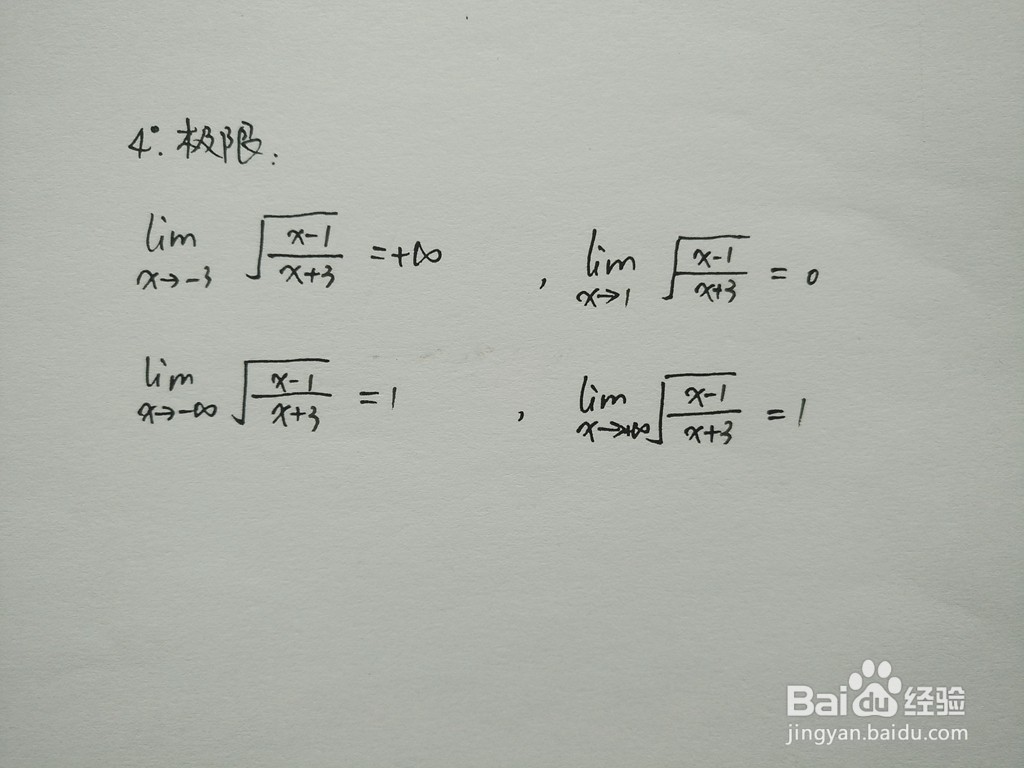 4°.极限:
lim x→-3 √((x-1)/(x+3)) = +∞ , lim x→1 √((x-1)/(x+3)) = 0
lim x→-∞ √((x-1)/(x+3)) = 1 , lim x→+∞ √((x-1)/(x+3)) = 1
Baidu经验
jingyan.baidu.com